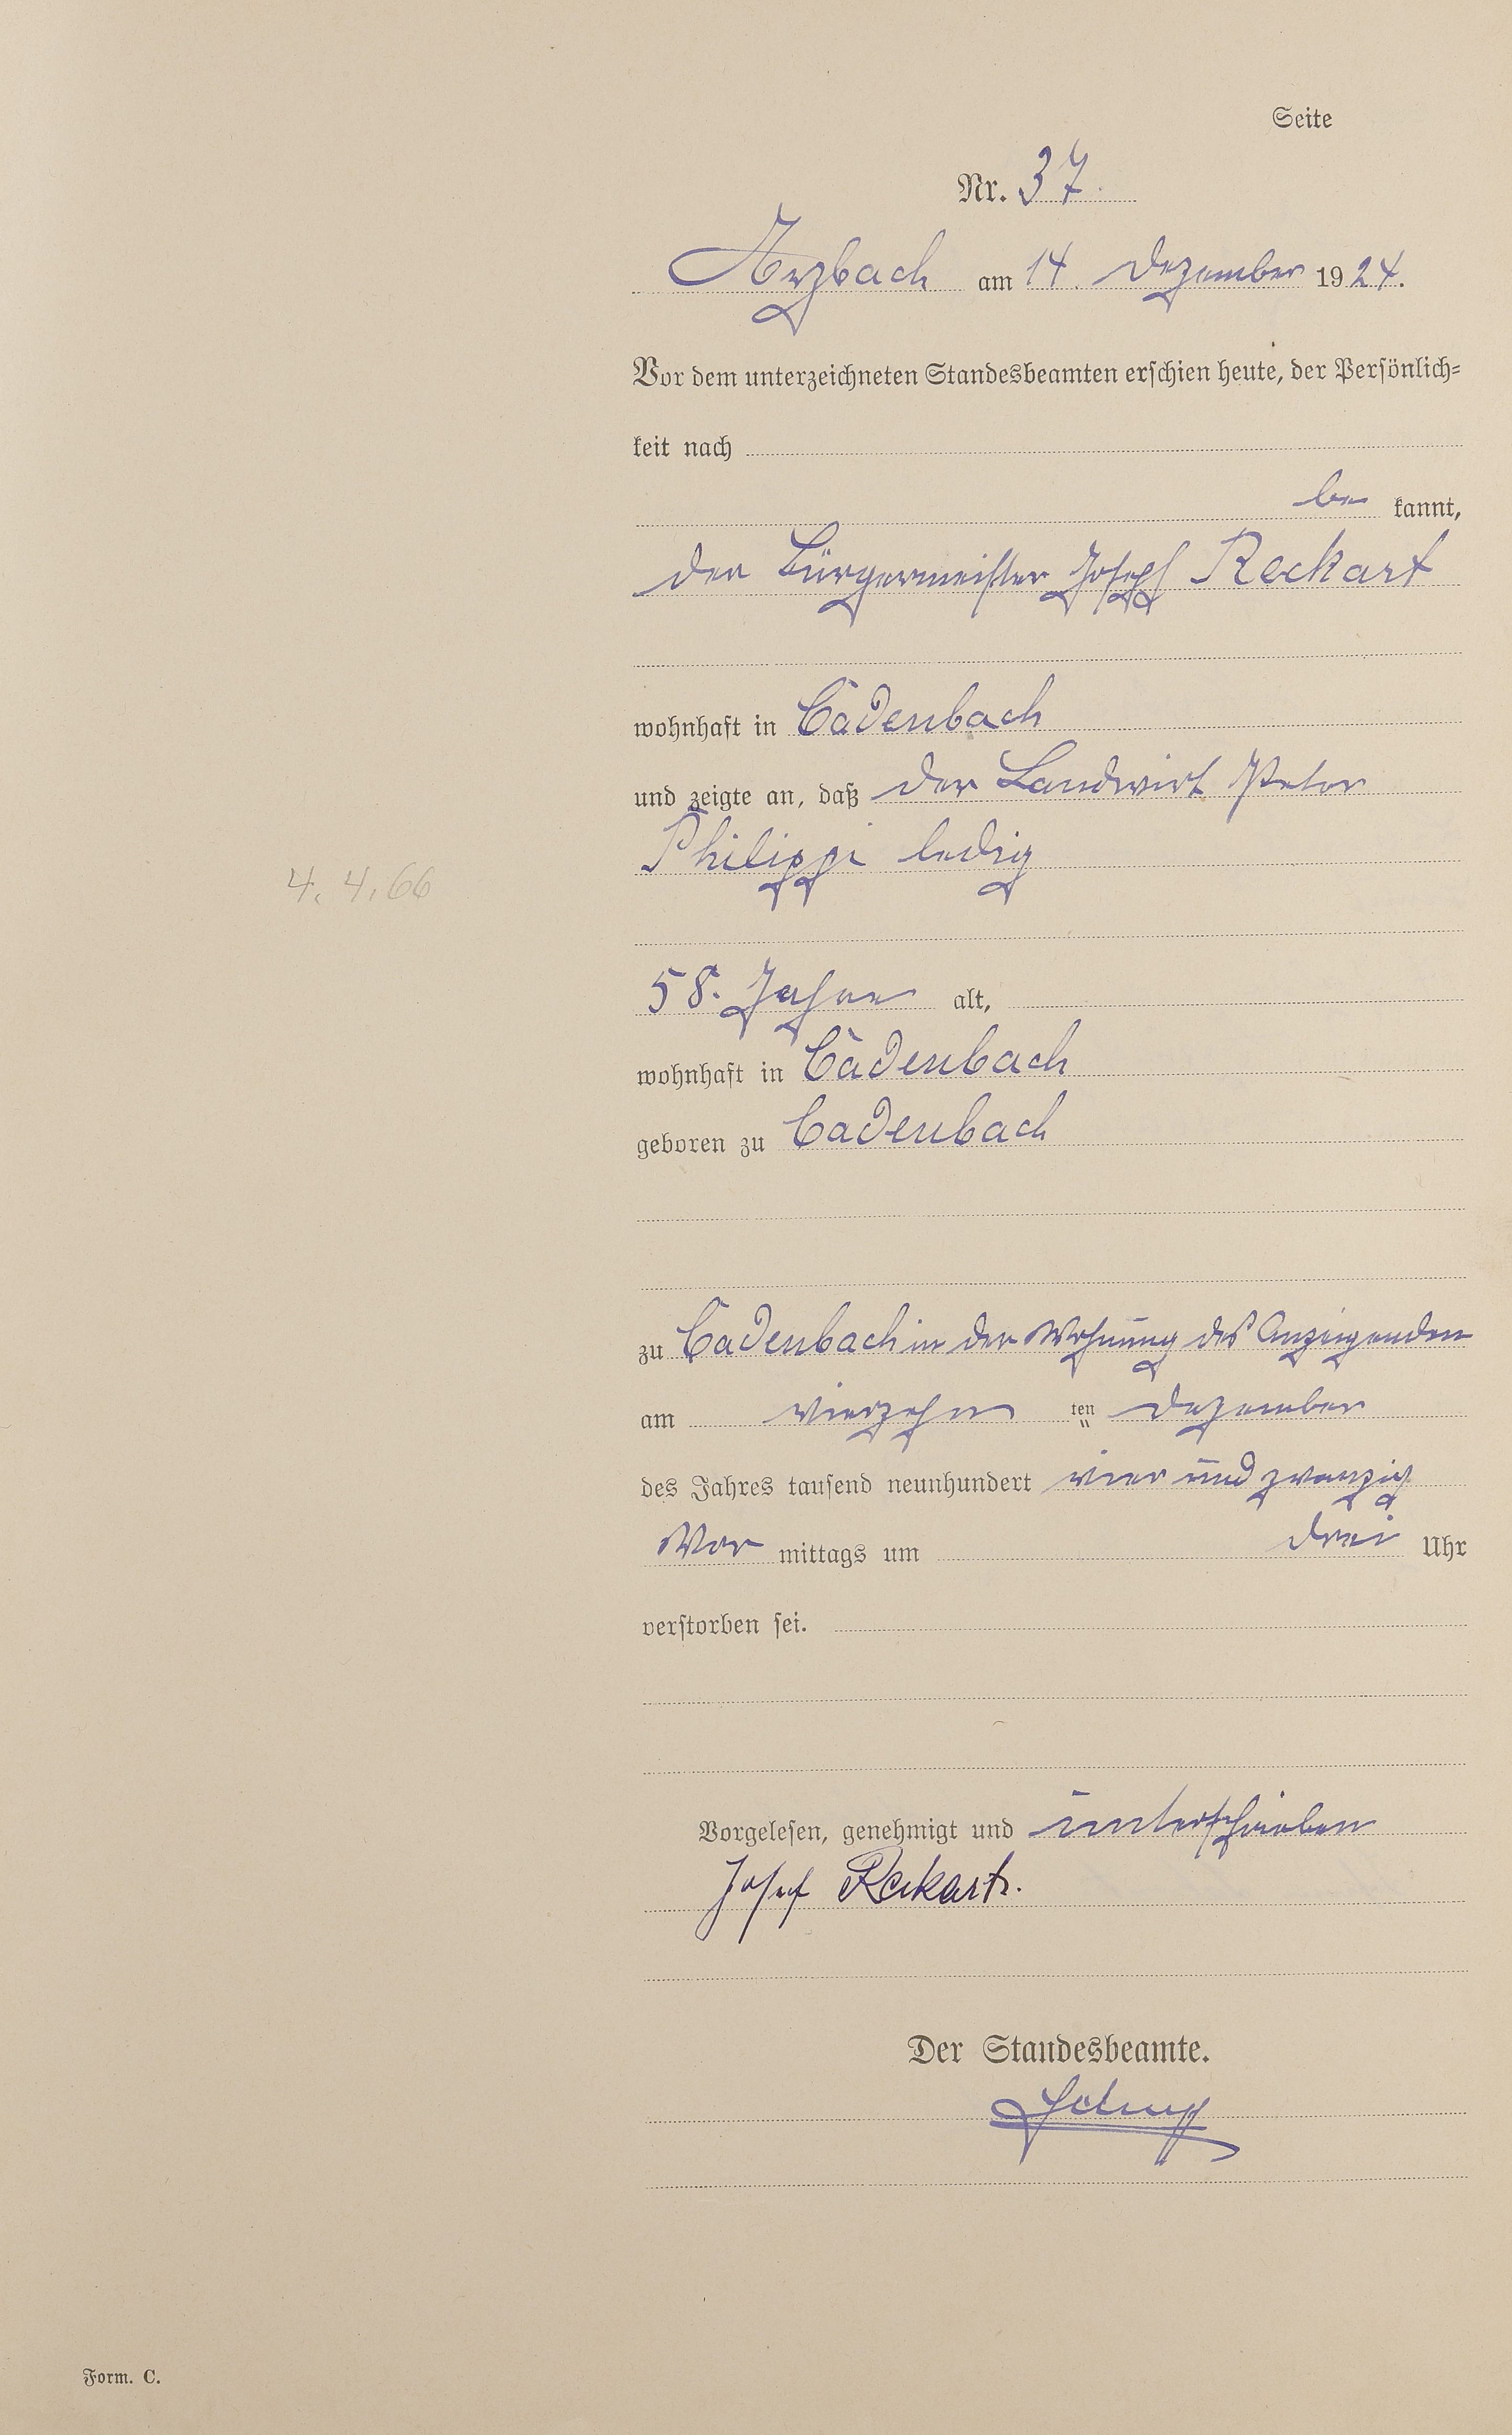 Seite
Nr. 37.
Arzbach am 14. Dezember 1924.
Vor dem unterzeichneten Standesbeamten erschien heute, der Persönlich=
keit nach
be kannt,
der Bürgermeister Joseph Reckart
wohnhaft in Cadenbach
und zeigte an, daß der Landwirt Peter
Philippi ledig
4. 4. 66
58. Jahre alt,
wohnhaft in Cadenbach
geboren zu Cadenbach
zu Cadenbach in der Wohnung des Anzeigenden
am vierzehn ten Dezember
des Jahres tausend neunhundert vier und zwanzig
Vor mittags um drei Uhr
verstorben sei.
Vorgelesen, genehmigt und unterschrieben
Josef Reckart.
Der Standesbeamte.
Form. C.